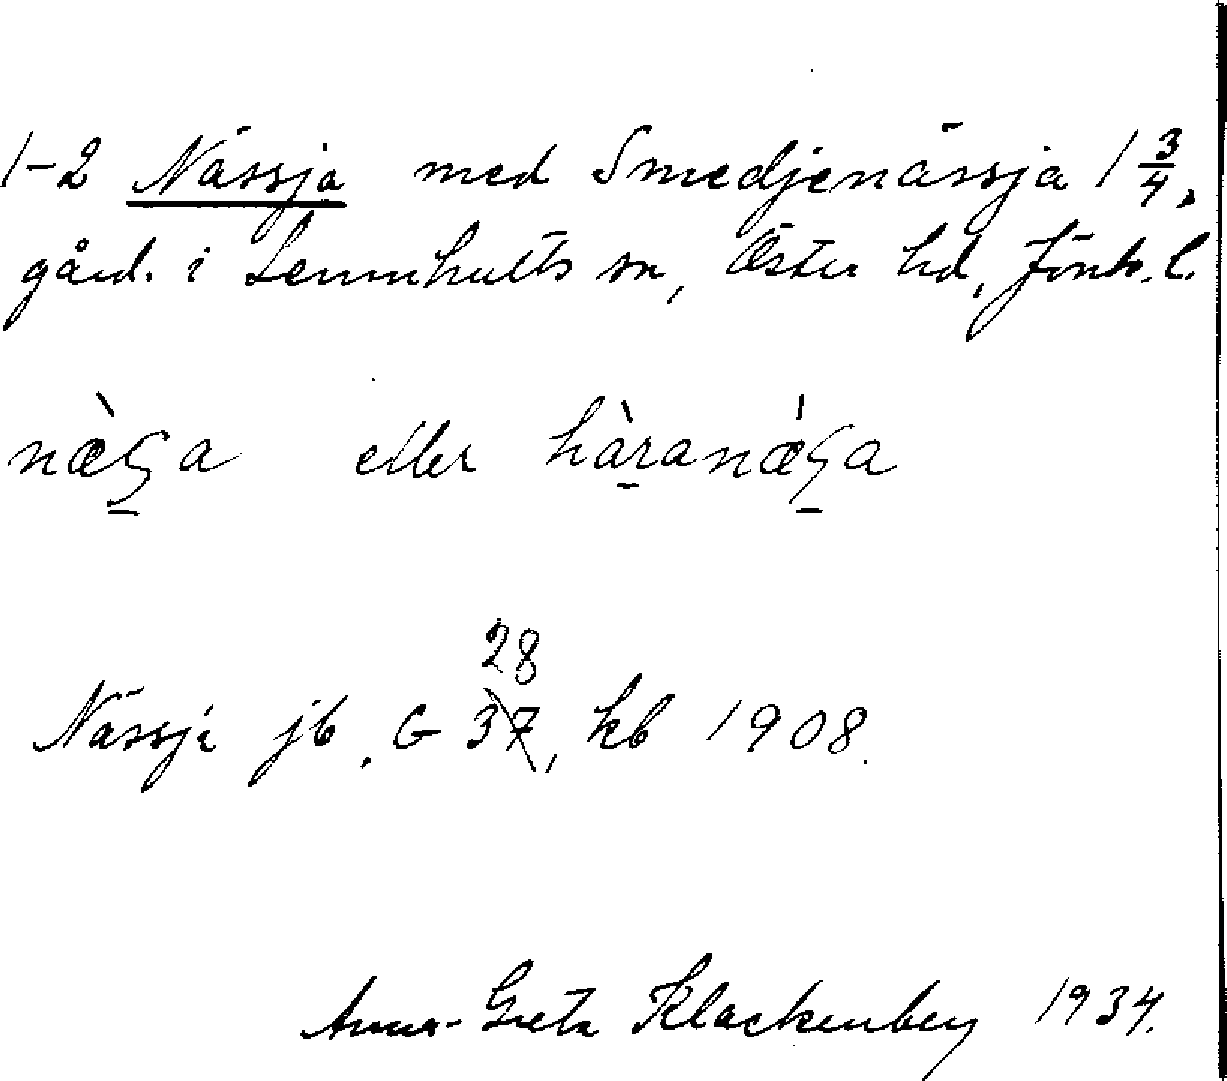 1-2 Nässja med Smedjenässja 1 3/4,
gård. i Lemnhults sn, Östra hd, Jönk. l.
næ̀ʂa eller hàranǽʂa
28
Nässja jb, G 37, kb 1908.
Anna-Greta Klackenberg 1934.